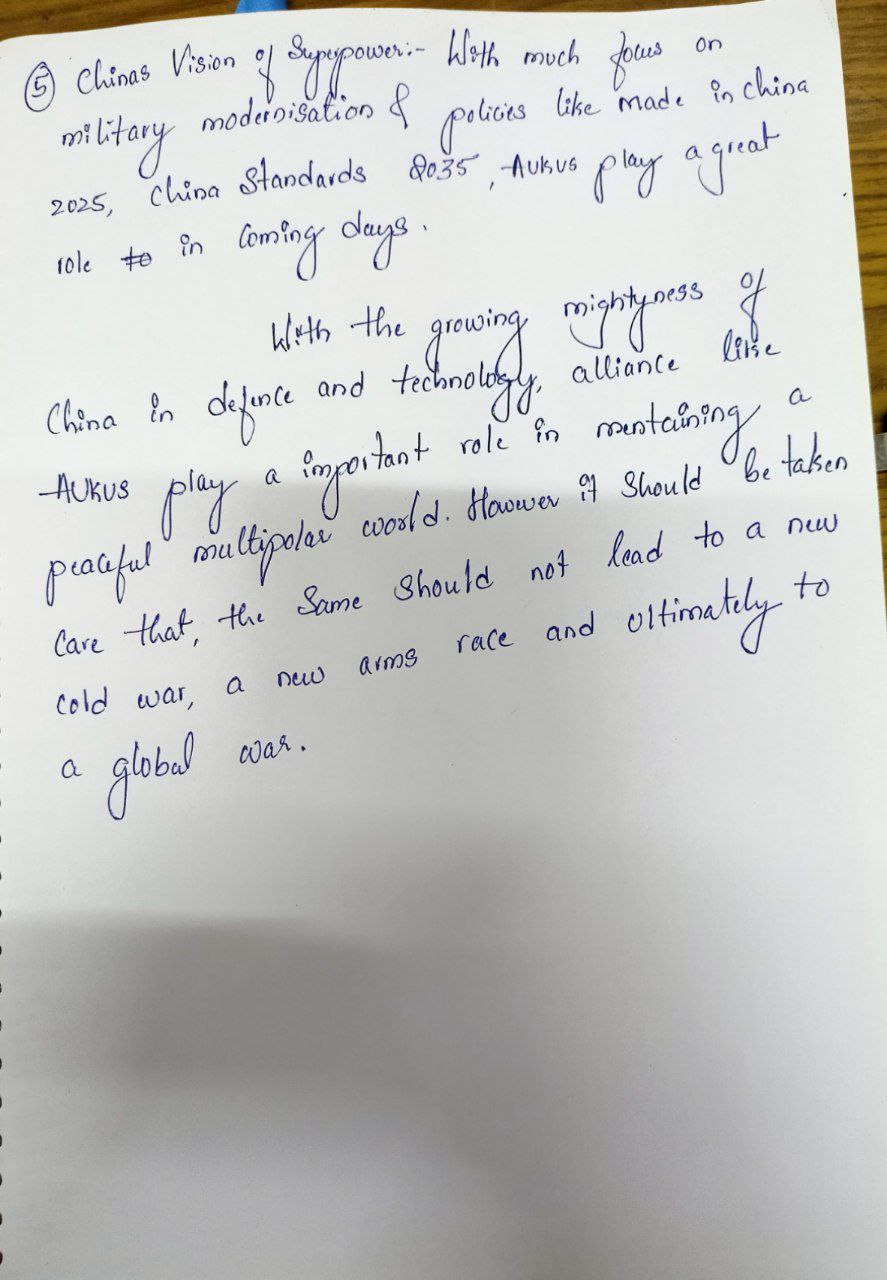 ⑤ Chinas Vision of Superpower:- With much focus on
military modernisation & policies like made in china
2025, China Standards 2035, AUKUS play a great
role to in coming days.
With the growing mightyness of
China in defence and technology, alliance like
AUKUS play a important role in mentaining a
peaceful multipolar world. However it should be taken
care that, the same should not lead to a new
cold war, a new arms race and ultimately to
a global war.